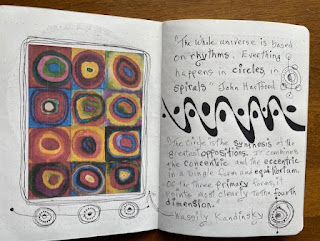 "The whole universe is based
on rhythms. Everything
happens in circles, in
spirals." John Hartford
"The Circle is the synthesis of the
greatest oppositions. It combines
the concentric and the eccentric
in a single form and equilibrium.
Of the three primary forms, it
points most clearly to the fourth
dimension."
—Wassily Kandinsky